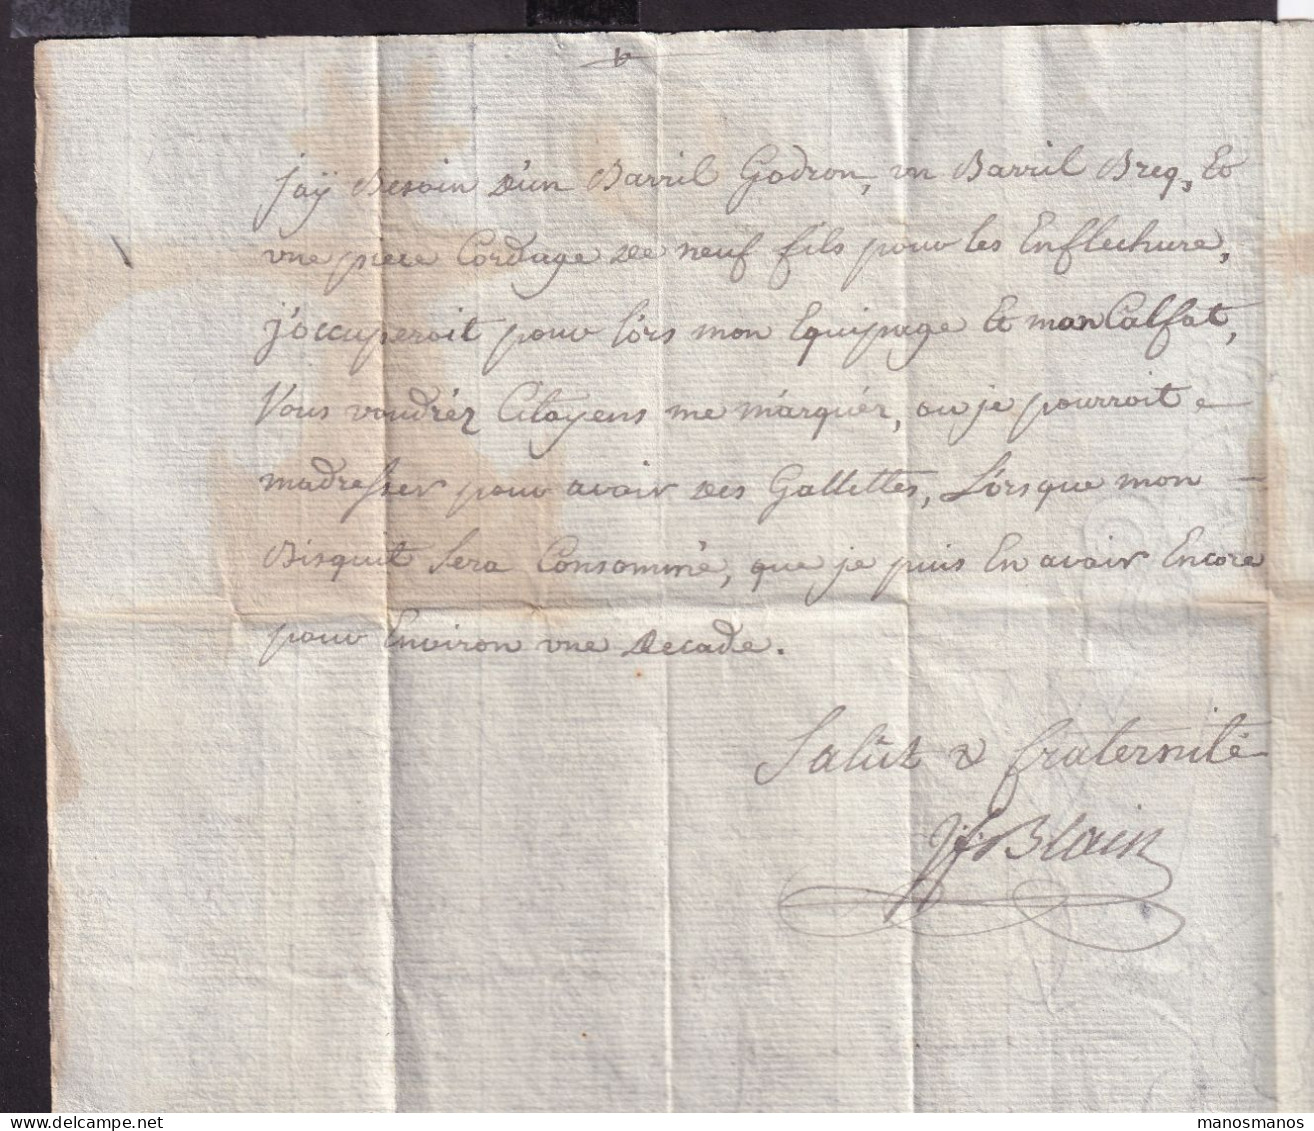 Jaÿ Besoin d'un Barril Godron, un Barril Breq, Et
vne piece Cordage de neuf fils pour les Enflechure,
j'occuperoit pour lors mon Equipage Et mon Calfat,
Vous voudréz Citoyens me marquér, ou je pourroit
madresser pour avoir des Gallettes, Lorsque mon
Bisquit Sera Consommé, que je puis En avoir Encore
pour Environ vne Decade.
Salût & fraternité
Blain
manosmanos